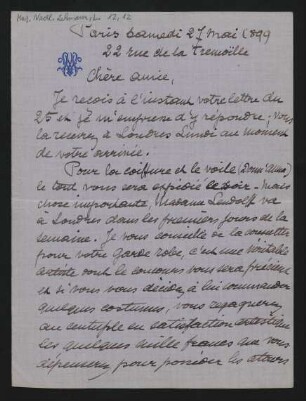 Mus. Nachl. Lehmann, L. 12, 12
Paris samedi 27 mai 1899
22 rue de la Tremoille
Chère amie,
Je reçois à l'instant votre lettre du
25 et je m'empresse d'y répondre; vous
la recevrez à Londres Lundi au moment
de votre arrivée.
Pour la coiffure et le voile (Donn'Anna)
le tout vous sera expédié ce soir. Mais
chose importante, Madame Ludolff va
à Londres dans les premiers jours de la
semaine. Je vous conseille de la consulter
pour votre garde robe, c'est une véritable
artiste dont le concours vous sera précieux
et si vous vous décidez à lui commander
quelques costumes, vous regagnerez
au centuple en satisfaction artistique
les quelques mille francs que vous
dépenserez pour posséder les atours